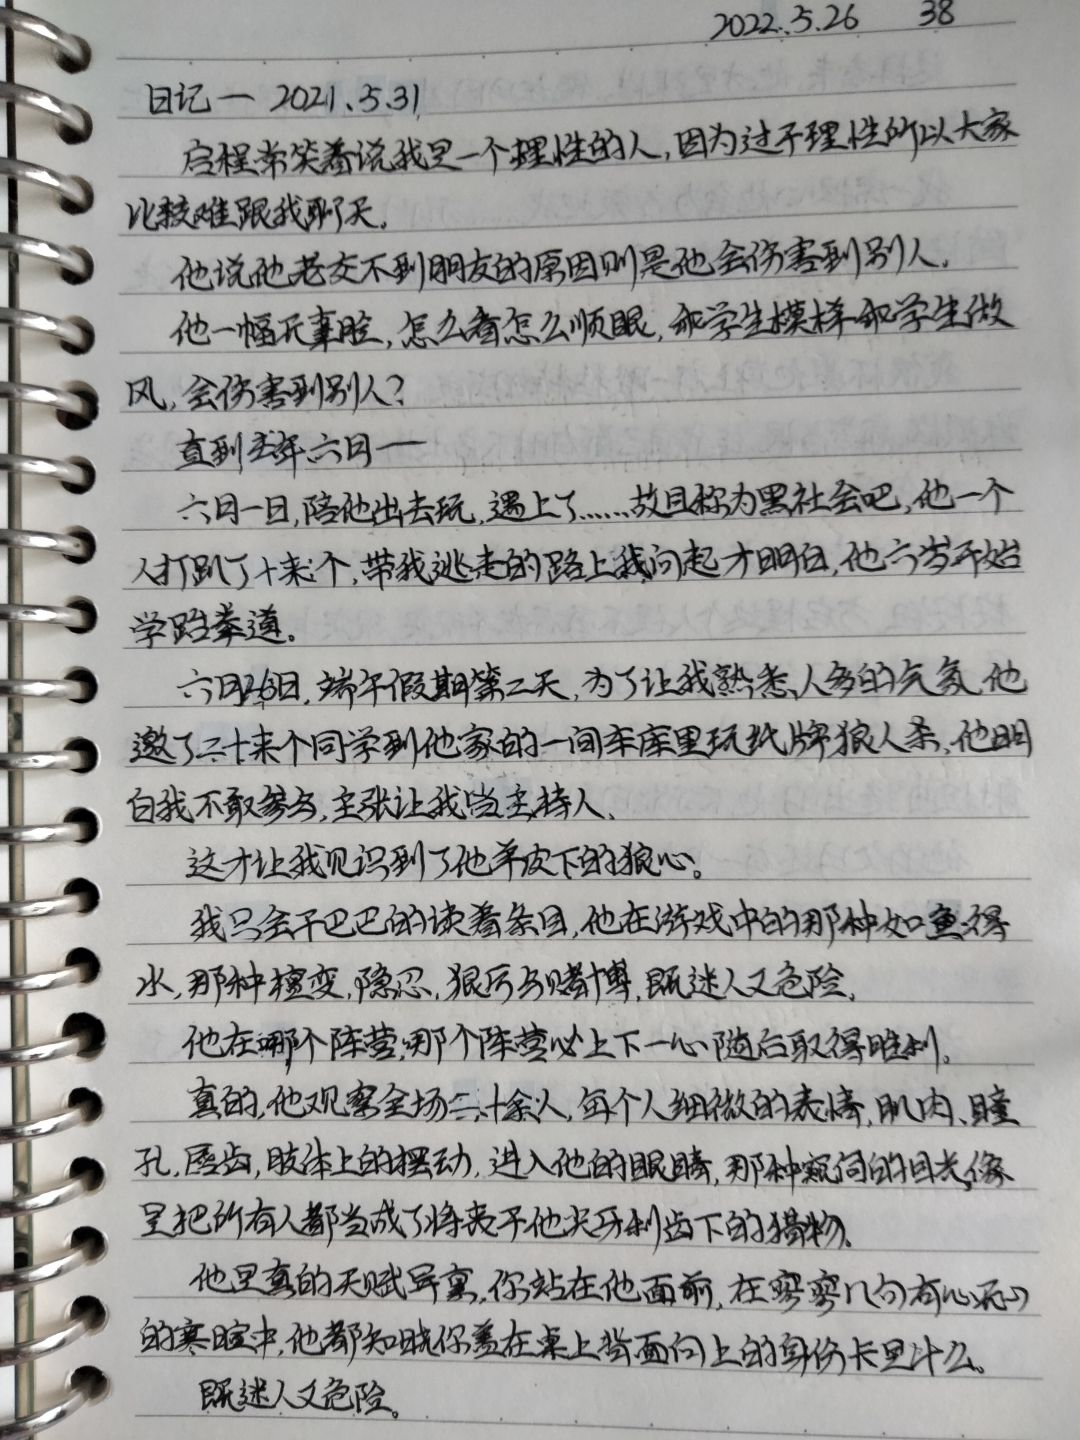 2022.5.26 38
日记一 2021.5.31
启程常笑着说我是一个理性的人,因为过于理性所以大家
比较难跟我聊天.
他说他老交不到朋友的原因则是他会伤害到别人.
他一幅无辜脸,怎么看怎么顺眼,乖学生模样乖学生做
风,会伤害到别人?
直到去年六月一
六月一日,陪他出去玩,遇上了……故且称为黑社会吧,他一个
人打趴了十来个,带我逃走的路上我问起才明白,他六岁开始
学跆拳道。
六月26日,端午假期第二天,为了让我熟悉人多的气氛,他
邀了二十来个同学到他家的一间车库里玩纸牌狼人杀,他明
白我不敢参与,主张让我当主持人、
这才让我见识到了他羊皮下的狼心。
我只会干巴巴的读着条目,他在游戏中的那种如鱼得
水,那种擅变,隐忍,狠厉与赌博,既迷人又危险,
他在哪个阵营,那个阵营必上下一心随后取得胜利。
真的,他观察全场二十余人,每个人细微的表情,肌肉、瞳
孔,唇齿,肢体上的摆动,进入他的眼睛,那种窥伺的目光,像
是把所有人都当成了将丧于他尖牙利齿下的猎物.
他是真的天赋异禀,你站在他面前,在寥寥几句有心无心
的寒暄中,他都知晓你盖在桌上背面向上的身份卡是什么。
既迷人又危险。